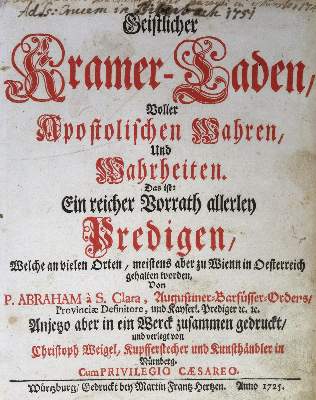 Ad S. Crucem in Biberbach 1751
Geistlicher
Kramer-Laden,
Voller
Apostolischen Wahren,
Und
Wahrheiten.
Das ist:
Ein reicher Vorrath allerley
Predigen,
Welche an vielen Orten, meistens aber zu Wienn in Oesterreich
gehalten worden,
Von
P. ABRAHAM à S. Clara, Augustiner-Barfüsser-Ordens,
Provinciæ Definitore, und Kayserl. Prediger ꝛc. ꝛc.
Anjezo aber in ein Werck zusammen gedruckt,
und verlegt von
Christoph Weigel, Kupfferstecher und Kunsthändler in
Nürnberg.
Cum PRIVILEGIO CÆSAREO.
Würtzburg, Gedruckt bey Martin Frantz Hertzen. Anno 1725.